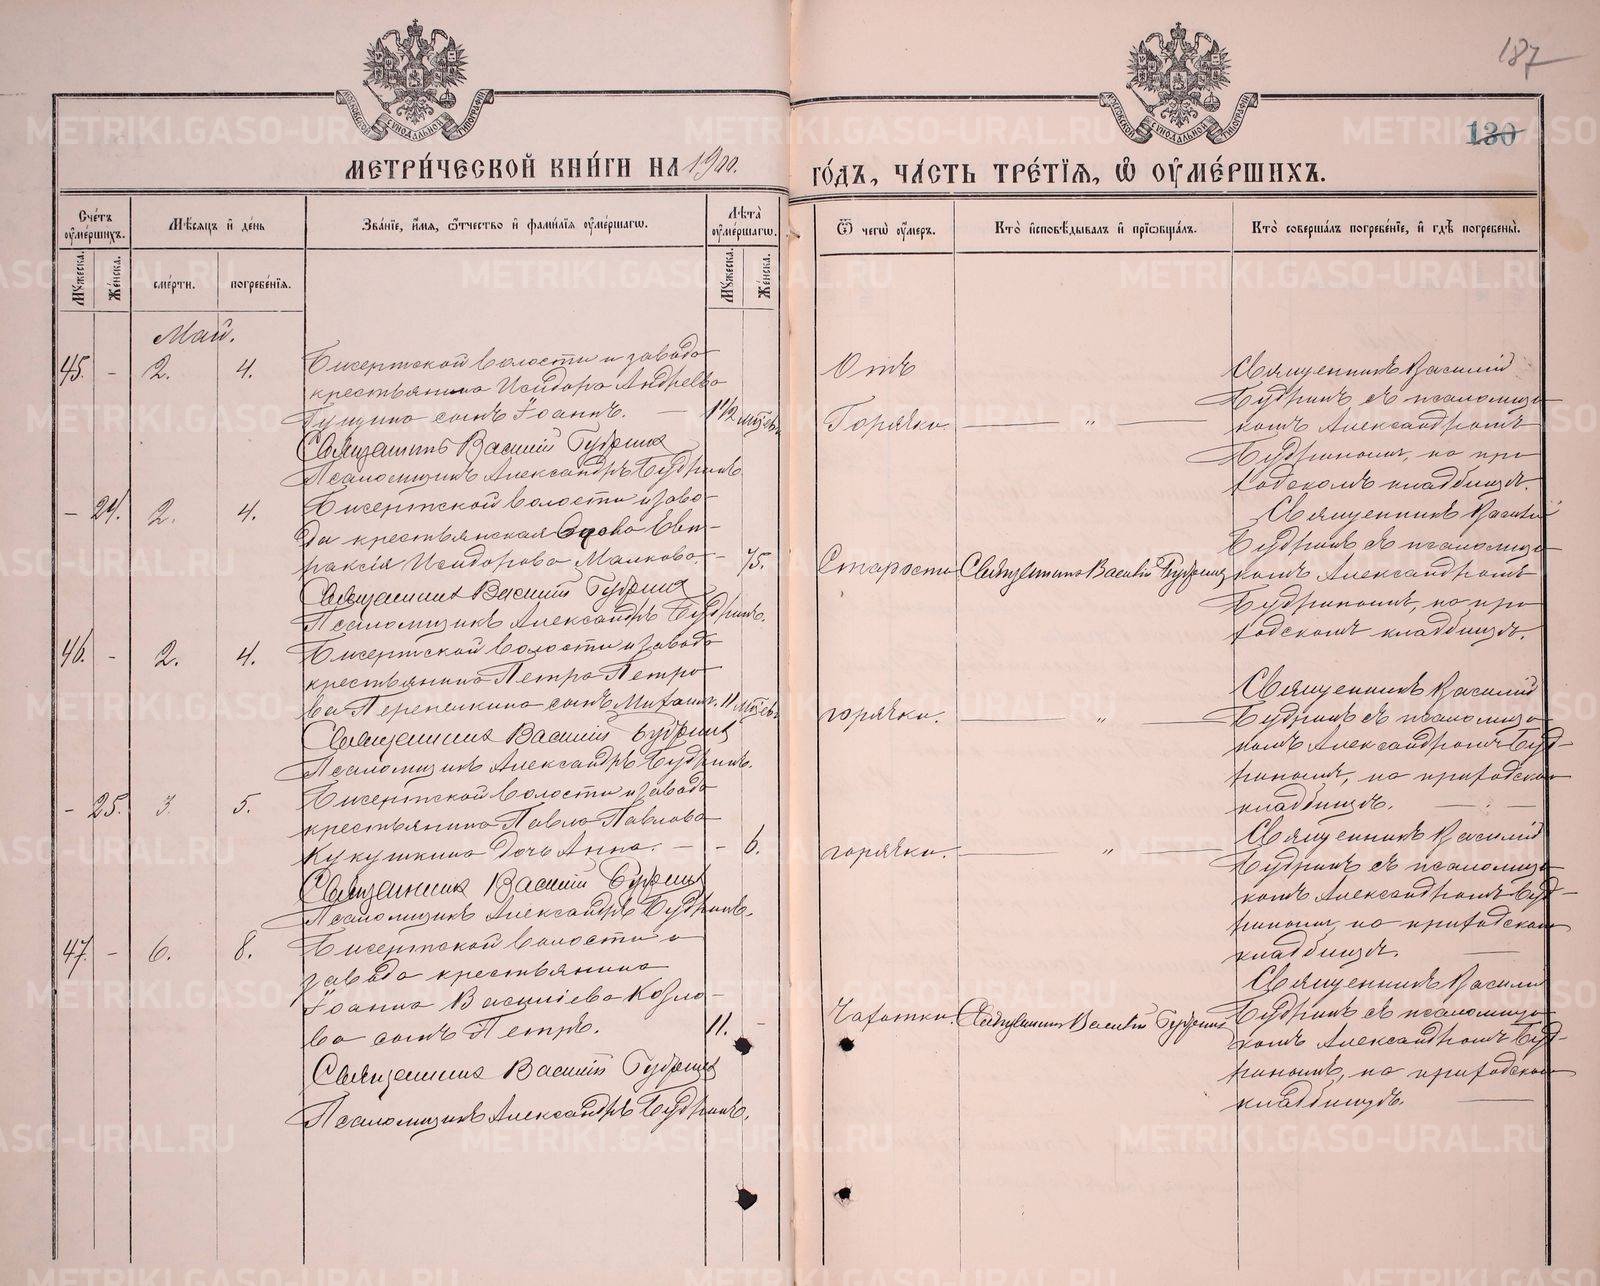 187
130
МЕТРИ́ЧЕСКОЙ КНИ́ГИ НА 1900.
ГО́ДЪ, ЧА́СТЬ ТРЕ́ТІЯ, Ѡ҆ ОУ҆МЕ́РШИХЪ.
Сче́тъ оу҆ме́ршихъ.
Мѣ́сяцъ и҆ де́нь
Зва́нїе, и҆́мя, ѻ҆́тчество и҆ фами́лїя оу҆ме́ршагѡ.
Лѣта̀ оу҆ме́ршагѡ.
Ѿ чегѡ̀ оу҆́меръ.
Кто̀ и҆сповѣ́дывалъ и҆ прїѡбща́лъ.
Кто̀ соверша́лъ погребе́нїе, и҆ гдѣ̀ погребены̀.
Мꙋ́жеска.
Же́нска.
сме́рти.
погребе́нїя.
Мꙋ́жеска.
Же́нска.
Май.
45. - 2. 4.
Бисертской волости и завода
крестьянина Исидора Андреева
сынъ Іоаннъ. — 1 1/2 мѣсяц.
Священникъ Василій Будринъ
Псаломщикъ Александръ Будринъ.
Отъ
Горячки — „ —
Священникъ Василій
Будринъ съ псаломщи-
комъ Александромъ
Будринымъ, на при-
ходскомъ кладбищѣ.
- 24. 2. 4.
Бисертской волости и заво-
да крестьянская вдова Евп-
раксія Исидорова Малкова. - 75.
Священникъ Василій Будринъ
Псаломщикъ Александръ Будринъ.
Старости Священникъ Василій Будринъ
Священникъ Василій
Будринъ съ псаломщи-
комъ Александромъ
Будринымъ, на при-
ходскомъ кладбищѣ.
46. - 2. 4.
Бисертской волости и завода
крестьянина Петра Петро-
ва сынъ Михаилъ. 11 мѣсяц.
Священникъ Василій Будринъ
Псаломщикъ Александръ Будринъ.
горячки. — „ —
Священникъ Василій
Будринъ съ псаломщи-
комъ Александромъ Буд-
ринымъ, на приходскомъ
кладбищѣ.
- 25. 3. 5.
Бисертской волости и завода
крестьянина Павла Павлова
Кукушкина дочь Анна. — - 6.
Священникъ Василій Будринъ
Псаломщикъ Александръ Будринъ.
горячки. — „ —
Священникъ Василій
Будринъ съ псаломщи-
комъ Александромъ Буд-
ринымъ, на приходскомъ
кладбищѣ.
47. - 6. 8.
Бисертской волости и
завода крестьянина
Іоанна Василіева Козло-
ва сынъ Петръ. 11. -
Священникъ Василій Будринъ
Псаломщикъ Александръ Будринъ.
Чахотки. Священникъ Василій Будринъ
Священникъ Василій
Будринъ съ псаломщи-
комъ Александромъ Буд-
ринымъ, на приходскомъ
кладбищѣ.